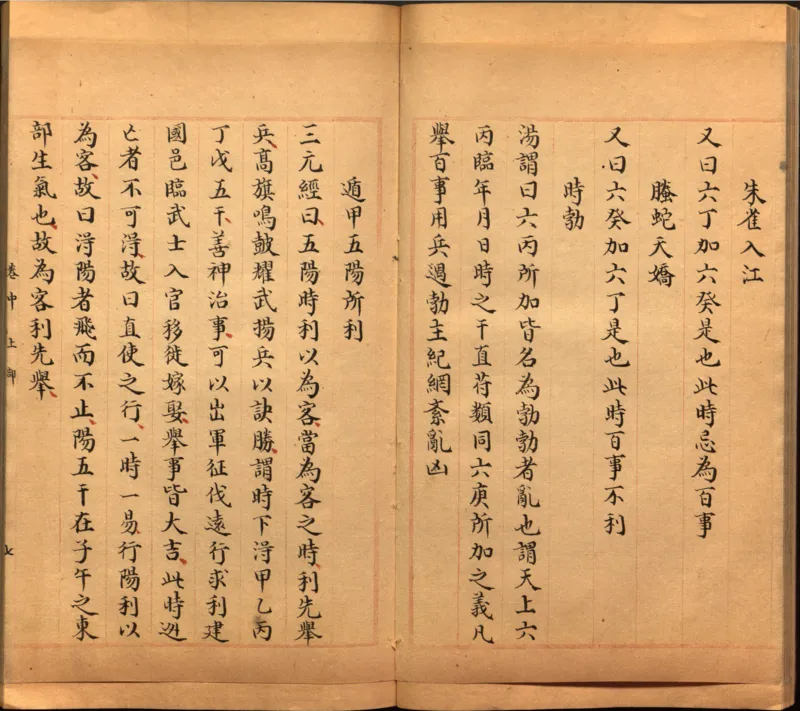 朱雀入江
又曰六丁加六癸是也此時忌為百事
螣蛇夭矯
又曰六癸加六丁是也此時百事不利
時勃
湯謂曰六丙所加皆名為勃勃者亂也謂天上六
丙臨年月日時之干直苻類同六庚所加之義凡
舉百事用兵遇勃主紀網紊亂凶
遁甲五陽所利
三元經曰五陽時利以為客當為客之時利先舉
兵髙旗鳴皷耀武揚兵以訣勝謂時下淂甲乙丙
丁戊五干善神治事可以出軍征伐遠行求利建
國邑臨武士入官移徙嫁娶舉事皆大吉此時迯
亡者不可淂故曰直使之行一時一易行陽利以
為客故曰淂陽者飛而不止陽五干在子午之東
部生氣也故為客利先舉
卷中上
七